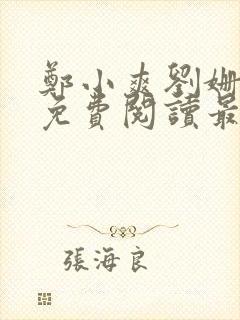 鄭小爽劉姍
免費閱讀最
張海良